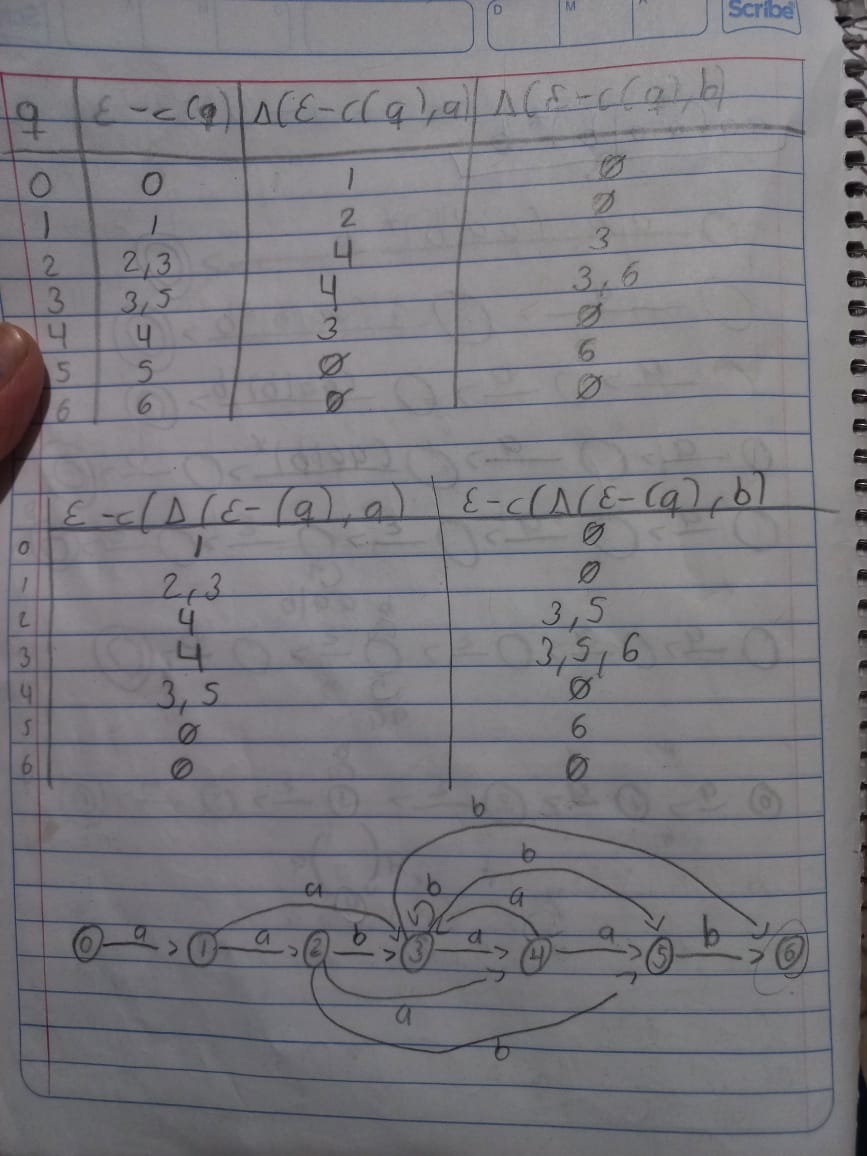 D M Scribe
q ε-c(q) Δ(ε-c(q),a) Δ(ε-c(q),b)
0 0 1 ∅
1 1 2 ∅
2 2,3 4 3
3 3,5 4 3,6
4 4 3 ∅
5 5 ∅ 6
6 6 ∅ ∅
ε-c(Δ(ε-(q),a) ε-c(Δ(ε-(q),b)
0 1 ∅
1 2,3 ∅
2 4 3,5
3 4 3,5,6
4 3,5 ∅
5 ∅ 6
6 ∅ ∅
b
b
a b a
0 a 1 a 2 b 3 a 4 a 5 b 6
a
b